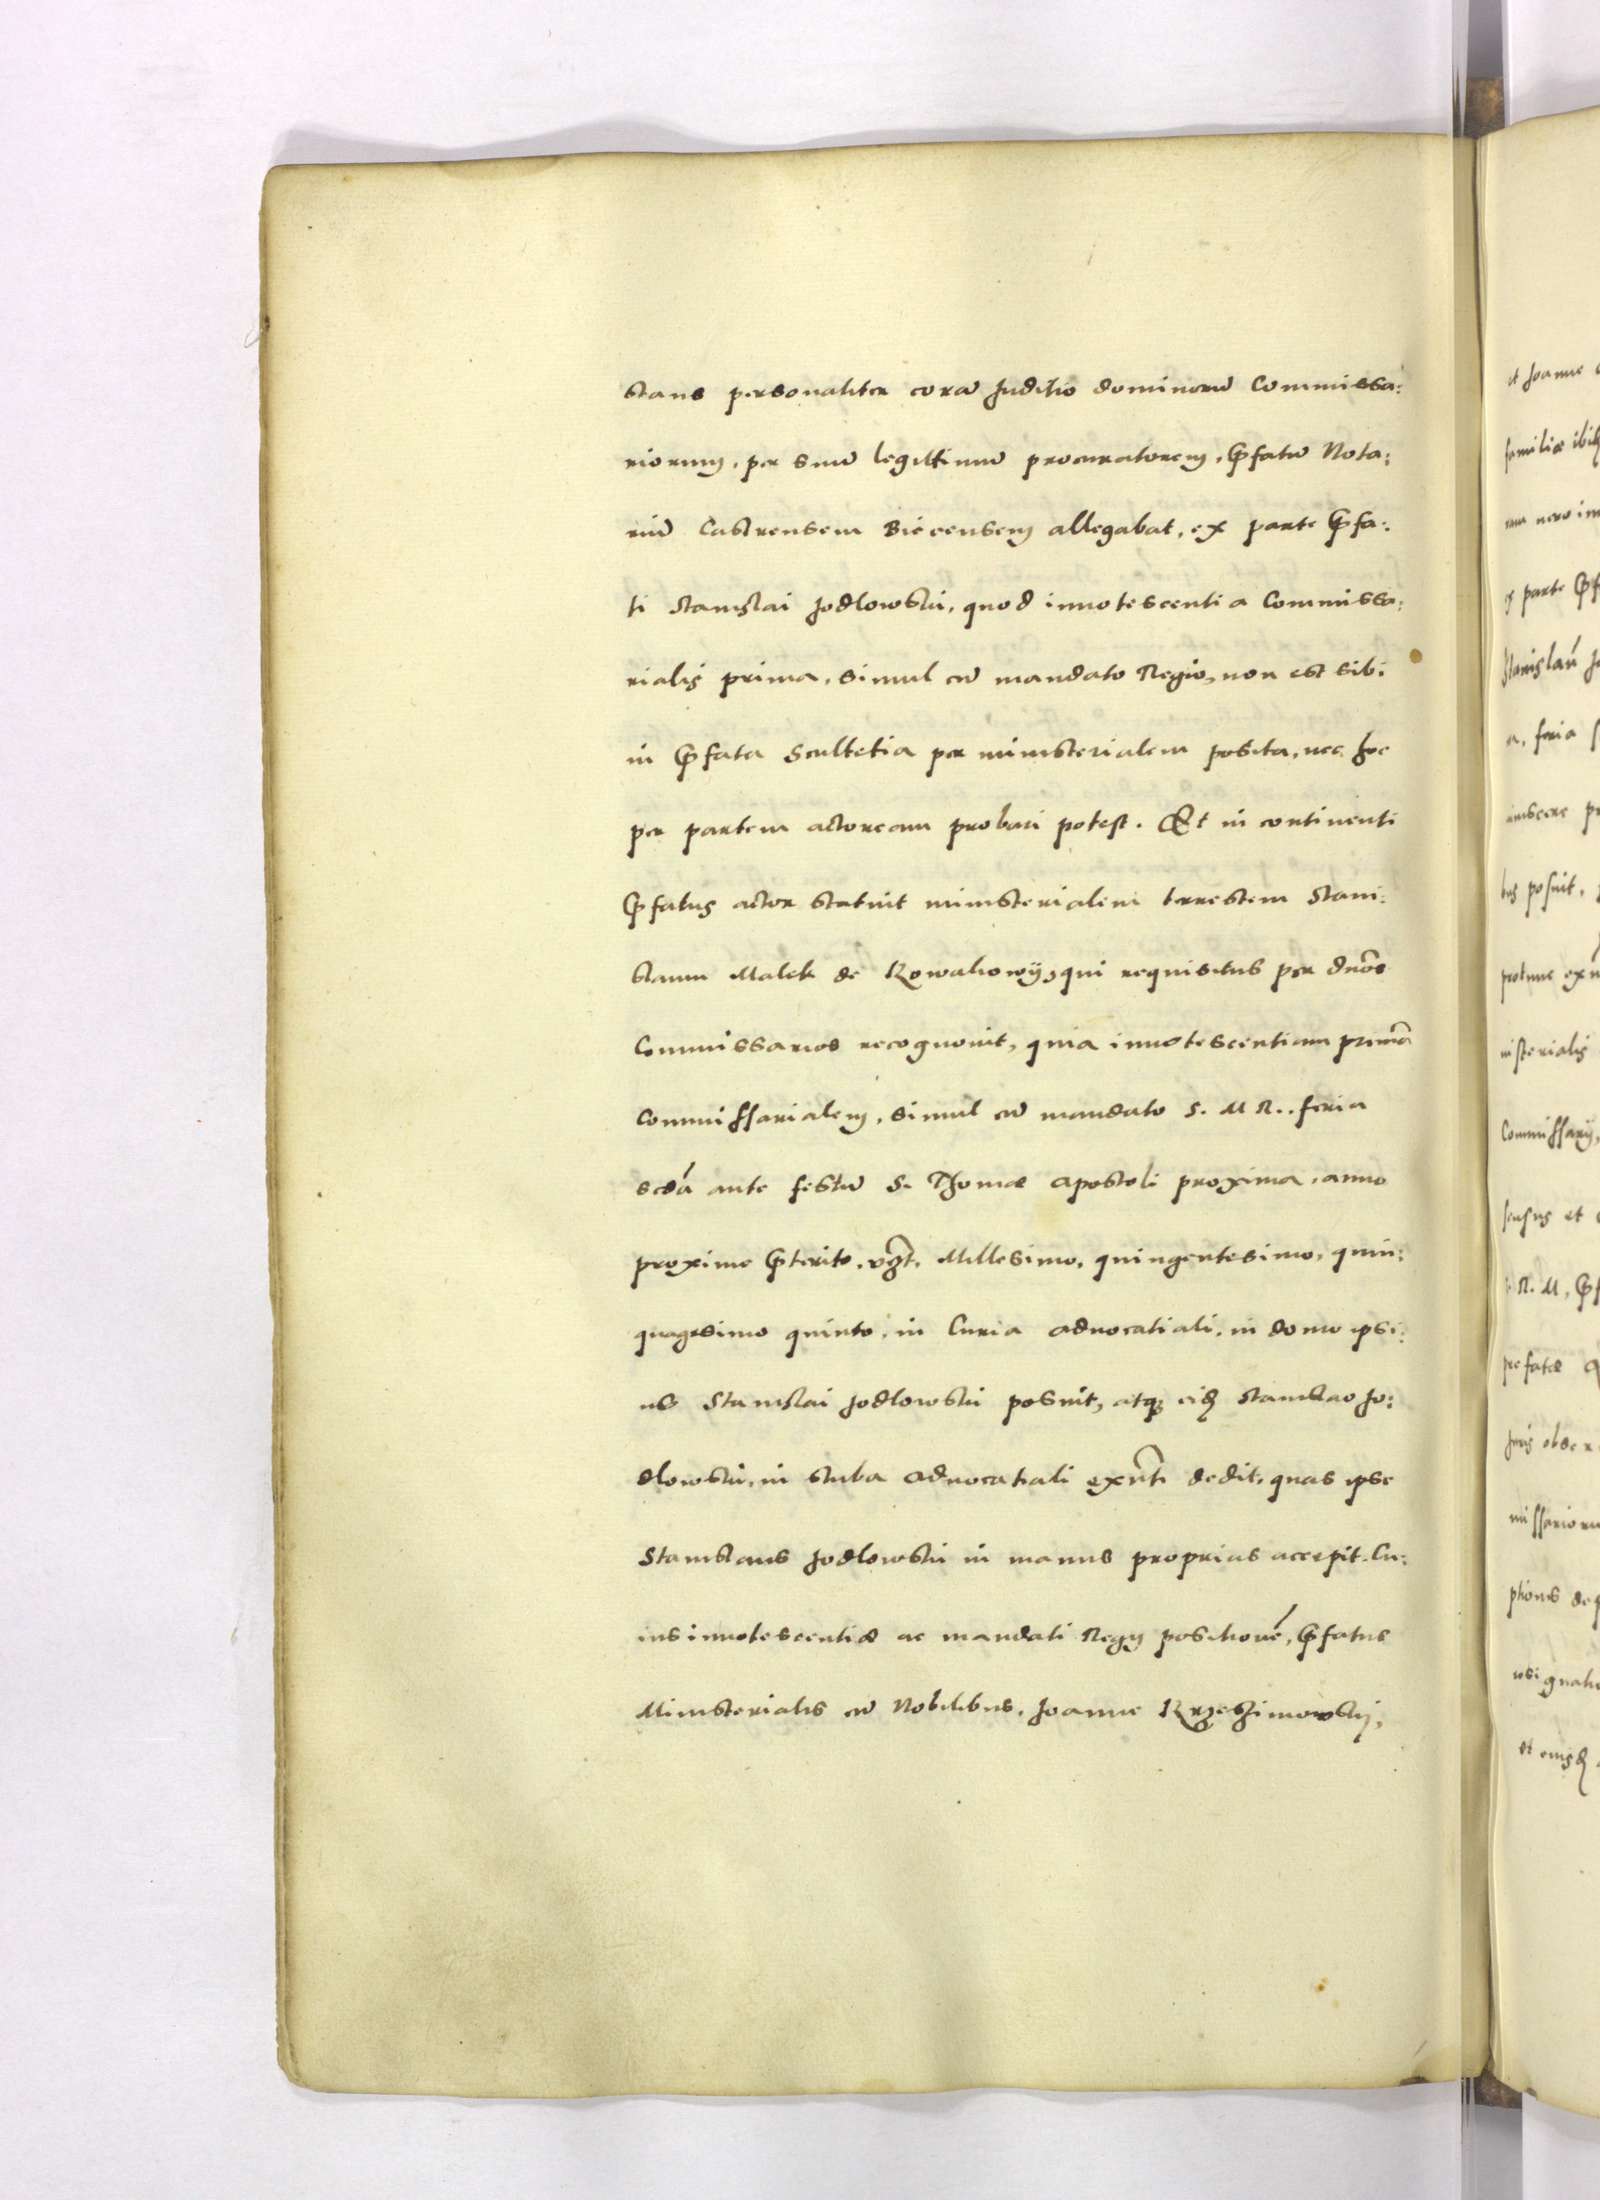 stans personaliter corā Juditio dominorū Commissa:
riorum, per suū legittimū procuratorem, p̄fatū Nota:
riū Castrensem Bieceensem allegabat, ex parte p̄fa:
ti Stanislai Jodlowski, quod innotescentia Commissa:
rialis prima, simul cū mandato Regio, non est sibi
in p̄fata Scultetia per ministerialem posita, nec hoc
per partem actoream probari potest. Et in continenti
p̄fatus actor statuit ministerialem terrestem Stani:
slaum Malek de Kowalowÿ, qui requisitus per dnōs
Commissarios recognouit, quia innotescentiam primā
Commissarialem, simul cū mandato S. M R.. feria
scdā ante festū S. Thomæ Apostoli proxima, anno
proxime p̄terito, vz̄t, Millesimo, quingentesimo, quin:
quagesimo quinto, in Curia aduocatiali, in domo ipsi:
us Stanislai Jodlowski posuit, atq̨ eid̨ Stanislao Jo:
dlowski, in stuba aduocatiali exn̄ti dedit, quas ipse
Stanislaus Jodlowski in manus proprias accepit. Cu:
ius innotescentiæ ac mandati Regij positionē, p̄fatus
Ministerialis cū Nobilibus, Joanne
et Joanne
familiæ
parte
Stanislaū
feria
posuit,
Commissarij,
et
R. M,